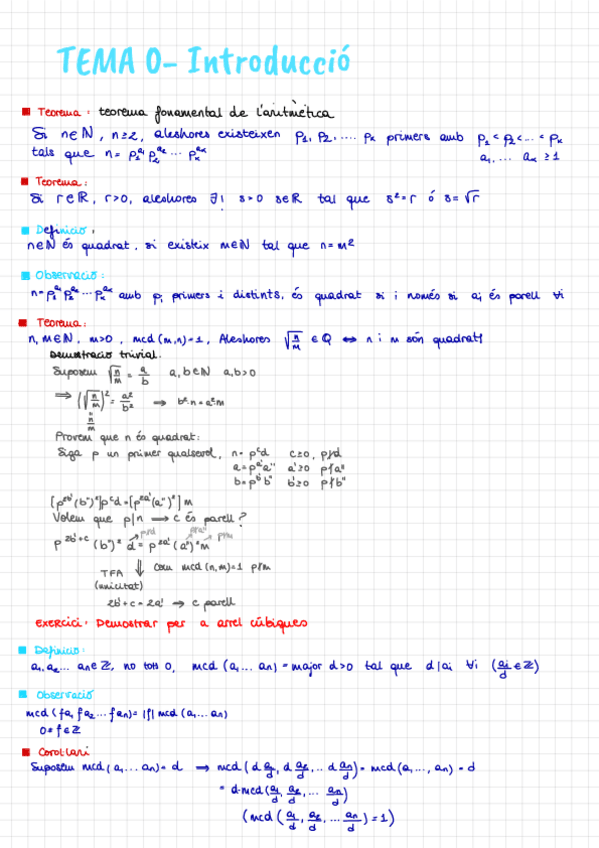 TEMA 0- Introducció
Teorema: teorema fonamental de l'aritmètica
Si n∈ℕ, n≥2, aleshores existeixen p₁, p₂, .... pₖ primers amb p₁ < p₂ < ... < pₖ
tals que n = p₁^a₁ p₂^a₂ ... pₖ^aₖ a₁, ... aₖ ≥ 1
Teorema:
Si r∈ℝ, r>0, aleshores ∃! s>0 s∈ℝ tal que s²=r ó s=√r
Definició:
n∈ℕ és quadrat, si existeix m∈ℕ tal que n=m²
Observació:
n=p₁^a₁ p₂^a₂ ... pₖ^aₖ amb pᵢ primers i distints, és quadrat si i només si aᵢ és parell ∀i
Teorema:
n, m∈ℕ, m>0, mcd(m,n)=1, Aleshores √(n/m) ∈ ℚ ⟺ n i m són quadrats
Demostració trivial.
Suposem √(n/m) = a/b a,b∈ℕ a,b>0
⟹ (√(n/m))² = a²/b² ⟹ b²·n=a²·m
n/m
Provem que n és quadrat:
Sigui p un primer qualsevol, n=p^c d c≥0, p∤d
a=p^a' a'' a'≥0 p∤a''
b=p^b' b'' b'≥0 p∤b''
[p^2b' (b'')²]p^c d=[p^2a' (a'')²]m
Volem que p|n ⟶ c és parell?
p∤d p∤a'' p∤m
p^2b'+c (b'')² d = p^2a' (a'')² m
TFA ⇓ com mcd(n,m)=1 p∤m
(unicitat)
2b'+c=2a' → c parell
Exercici: Demostrar per a arrel cúbiques
Definició:
a₁, a₂... aₙ∈ℤ, no tots 0, mcd(a₁... aₙ) = major d>0 tal que d|aᵢ ∀i (aᵢ/d ∈ ℤ)
Observació
mcd(fa₁, fa₂ ... faₙ) = |f| mcd(a₁...aₙ)
0≠f∈ℤ
Corol·lari
Suposem mcd(a₁...aₙ)=d → mcd(d a₁/d, d a₂/d, .. d aₙ/d) = mcd(a₁,..., aₙ) = d
= d·mcd(a₁/d, a₂/d, ... aₙ/d)
(mcd(a₁/d, a₂/d, ... aₙ/d) = 1)